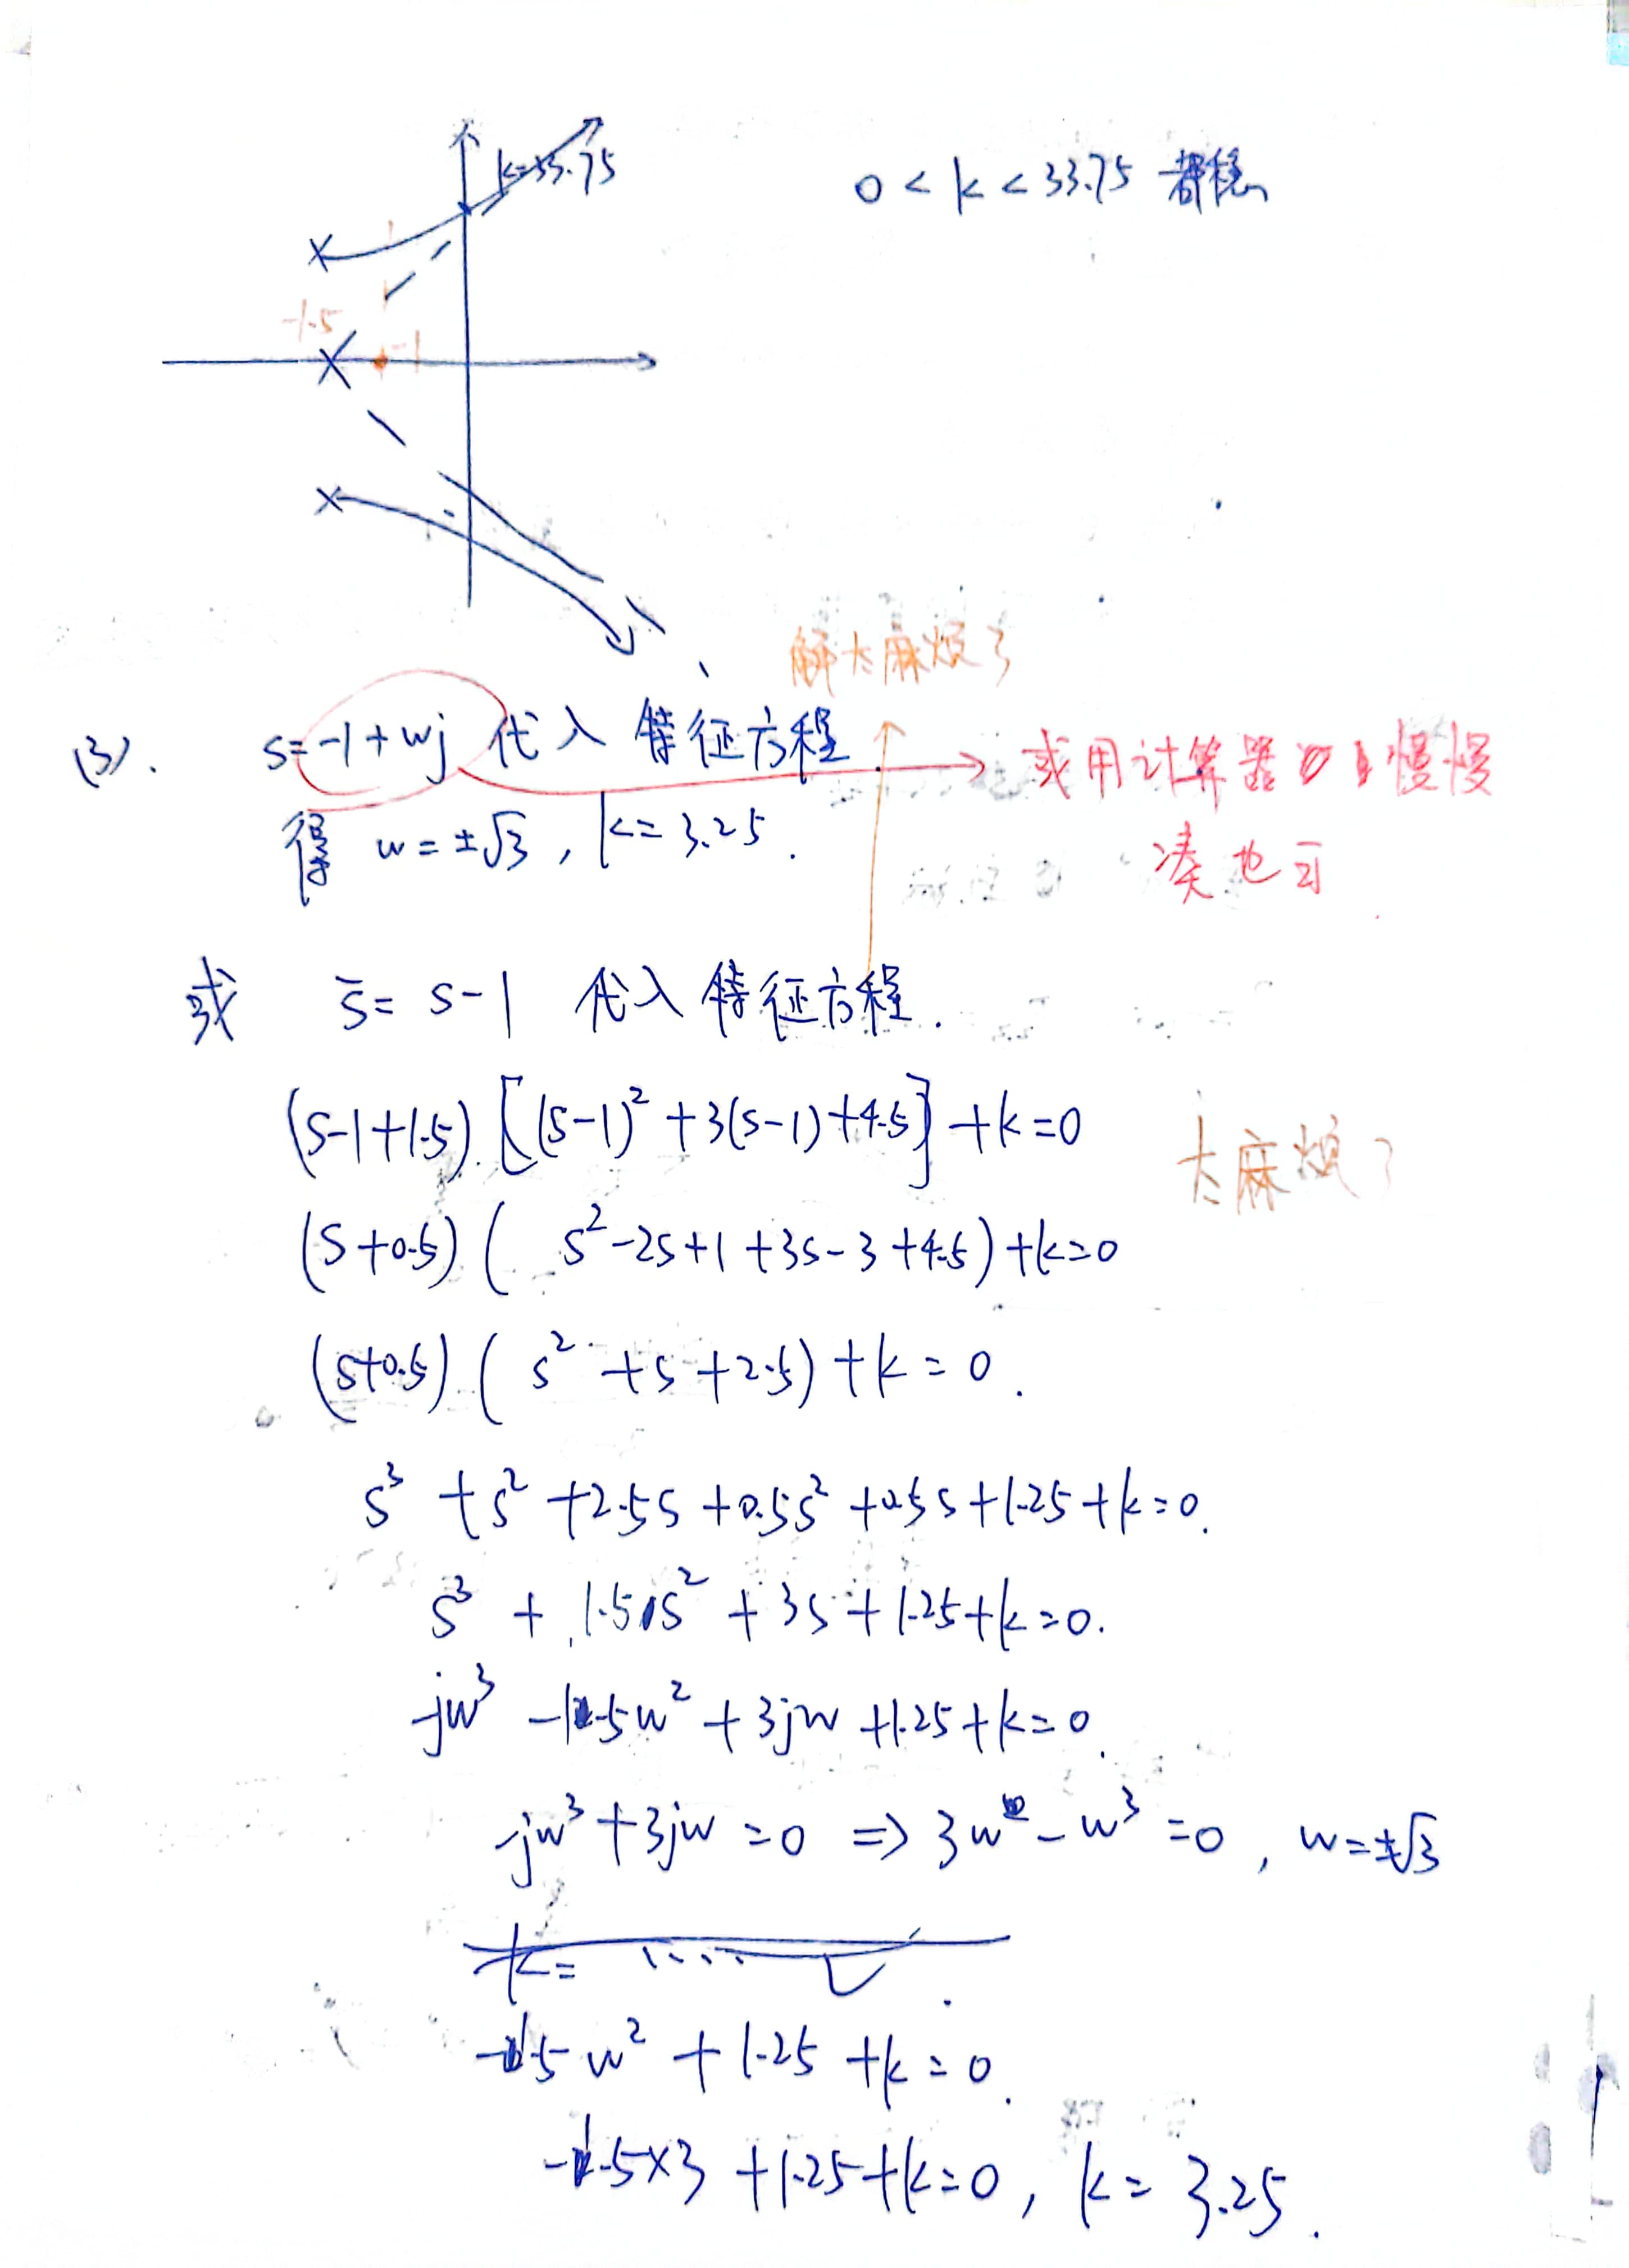 k=33.75
0 < k < 33.75 都稳
-1.5
-1
解太麻烦了
(3). s=-1+wj 代入特征方程
或用计算器慢慢
凑也可
得 w=±√3, k=3.25.
或 s̄= s-1 代入特征方程.
(s-1+1.5).[(s-1)²+3(s-1)+4.5]+k=0
太麻烦了
(s+0.5)( s²-2s+1+3s-3+4.5)+k=0
(s+0.5).( s²+s+2.5)+k=0.
s³+s²+2.5s+0.5s²+0.5s+1.25+k=0.
s³+1.5s²+3s+1.25+k=0.
-jw³-1.5w²+3jw+1.25+k=0.
-jw³+3jw=0 ⇒ 3w-w³=0, w=±√3
k=
-1.5w²+1.25+k=0.
-1.5×3+1.25+k=0, k=3.25.